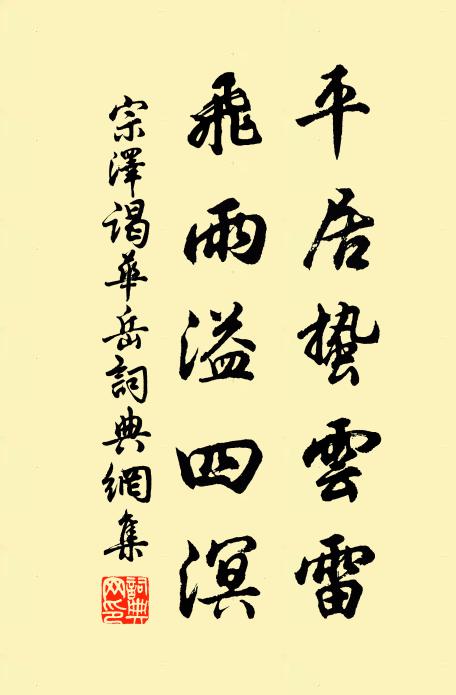 平居蟄雲雷
飛雨溢四溟
宗澤謁華岳詞典網集